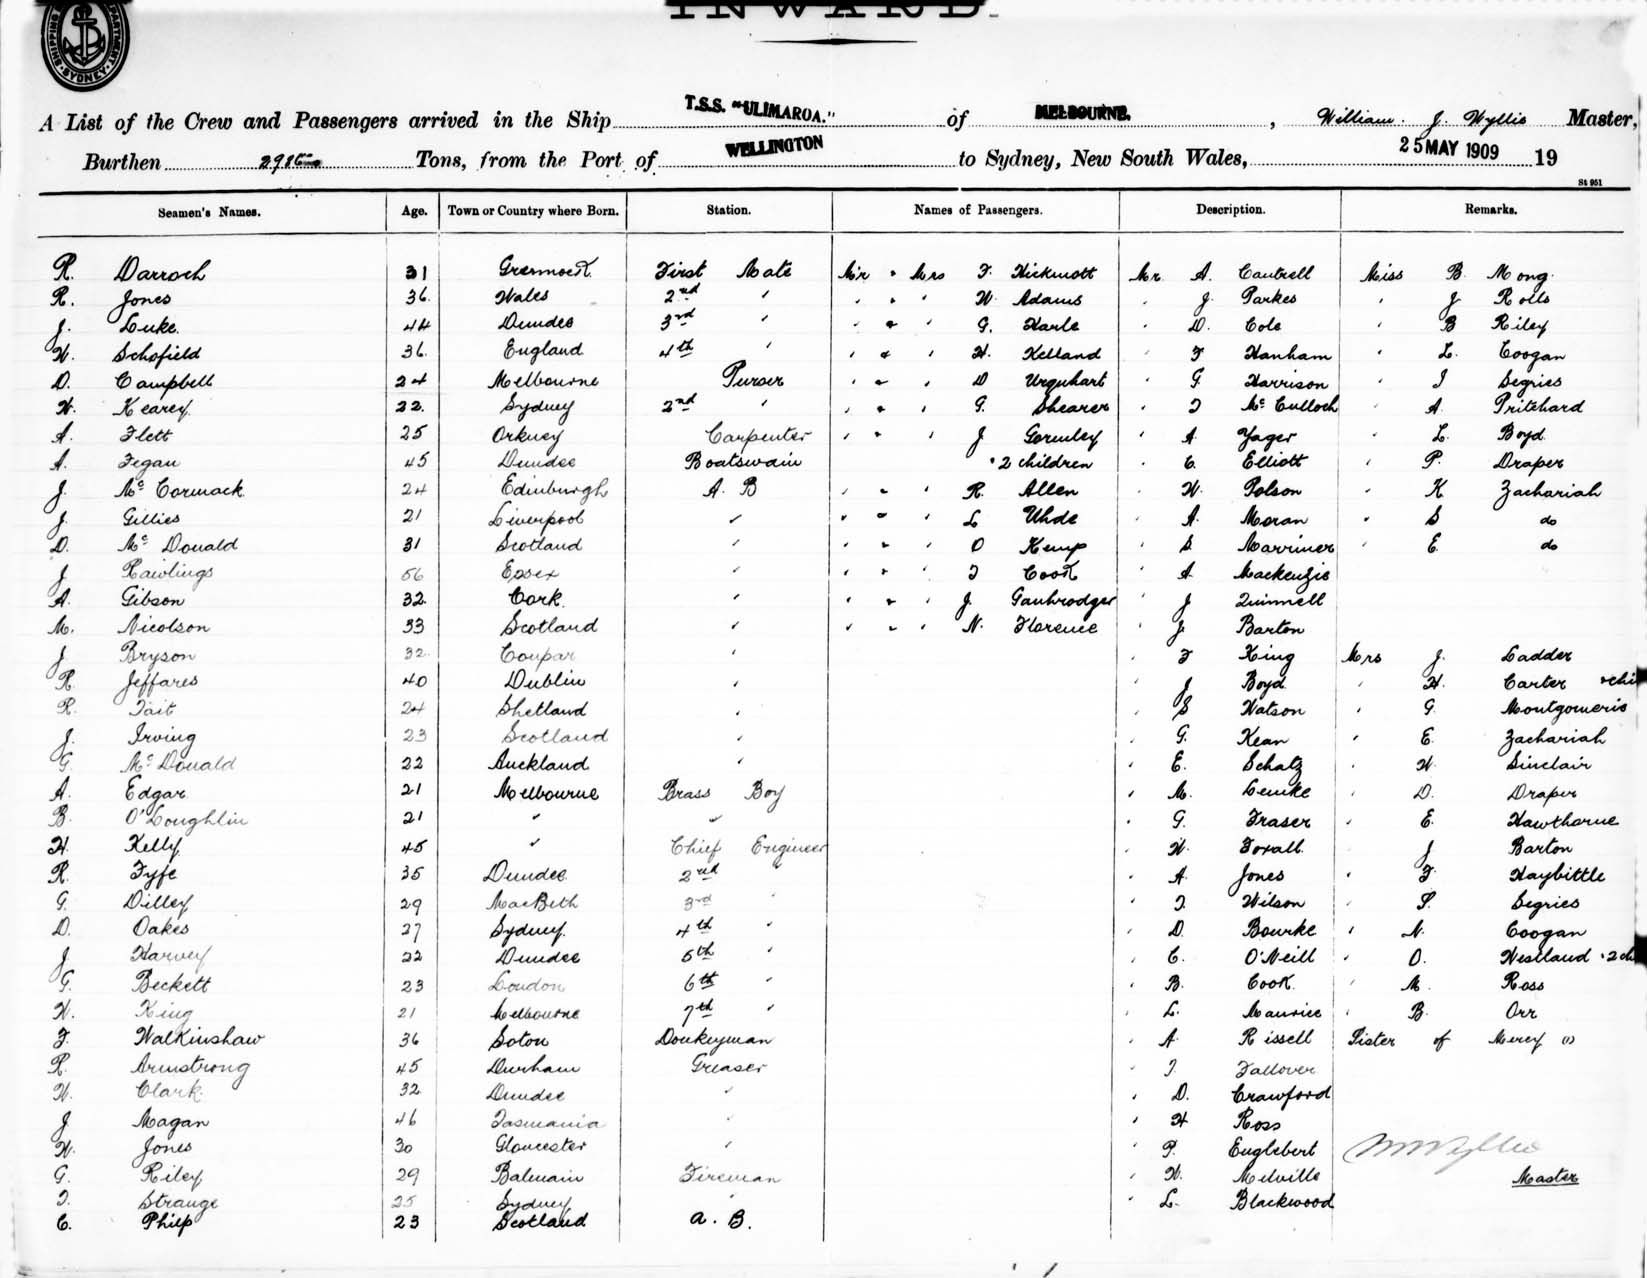 INWARD.
SYDNEY
A List of the Crew and Passengers arrived in the Ship T.S.S. "ULIMAROA." of MELBOURNE, William. J. Wyllie Master,
Burthen Tons, from the Port of WELLINGTON to Sydney, New South Wales, 25 MAY 1909 19
St 951
Seamen's Names. Age. Town or Country where Born. Station. Names of Passengers. Description. Remarks.
R. Darroch 31 Greenock First Mate Mr & Mrs F. Hickmott Mr. A. Cantrell Miss B. Mong
R. Jones 36. Wales 2nd " " & " W. Adams " J. Parkes " J Rolls
J. Luke. 44 Dundee 3rd " " & " G. Harle " D. Cole " B Riley
W. Schofield 36. England 4th " " & " H. Kelland " F Hanham " L. Coogan
D. Campbell 24 Melbourne Purser " & " D Urquhart " G. Harrison " J Segries
H. Kearey 22. Sydney 2nd " " & " G. Shearer " J McCulloch " A. Pritchard
A. Flett 25 Orkney Carpenter " & " J Gormley " A Yager " L. Boyd
A. Fegan 45 Dundee Boatswain & 2 children " C. Elliott " P. Draper
J. McCormack 24 Edinburgh A. B " & " R. Allen " W. Polson " K Zachariah
J. Gillies 21 Liverpool " " & " L Uhde " A. Moran " S do
D. McDonald 31 Scotland " " & " O Kemp " S. Marriner " E. do
J Rawlings 56 Essex " " & " J Cook " A. Mackenzie
A. Gibson 32 Cork. " " & " J. Gaubrodger " J Quinnell
M. Nicolson 33 Scotland " " & " N. Florence " J. Barton
J Bryson 32. Coupar " " F King Mrs J. Ladder
R. Jeffares 40 Dublin " " J Boyd " H. Carter & chi
R. Tait 24 Shetland " " S Watson " G. Montgomerie
J. Irving 23 Scotland " " G. Kean " E. Zachariah
G. McDonald 22 Auckland " " E. Schatz " W. Sinclair
A. Edgar 21 Melbourne Brass Boy " M. Lemke " D. Draper
B. O'Loughlin 21 " " " G. Fraser " E. Hawthorne
H. Kelly 45 " Chief Engineer " W. Foxall " J Barton
R. Fyfe 35 Dundee 2nd " " A. Jones " F. Haybittle
G. Dilley 29 MacBeth 3rd " " J. Wilson " P. Segries
D. Oakes 27 Sydney. 4th " " D. Bourke " N. Coogan
J Harvey 22 Dundee 5th " " C. O'Neill " O. Westland & 2 ch
G. Beckett 23 London 6th " " B. Cook. " M. Ross
W. King 21 Melbourne 7th " " L. Maurice " B. Orr
F. Walkinshaw 36 Soton Donkeyman " A. Rissell Sister of Mercy (1)
R. Armstrong 45 Durham Greaser " J. Fallover
W. Clark. 32 Dundee " " D. Crawford
J Magan 46 Tasmania " " H Ross
W. Jones 30 Gloucester " " P. Englebert
G. Riley 29 Balmain Fireman " W. Melville Master
J. Strange 25 Sydney " " L. Blackwood
C. Philp 23 Scotland A. B.